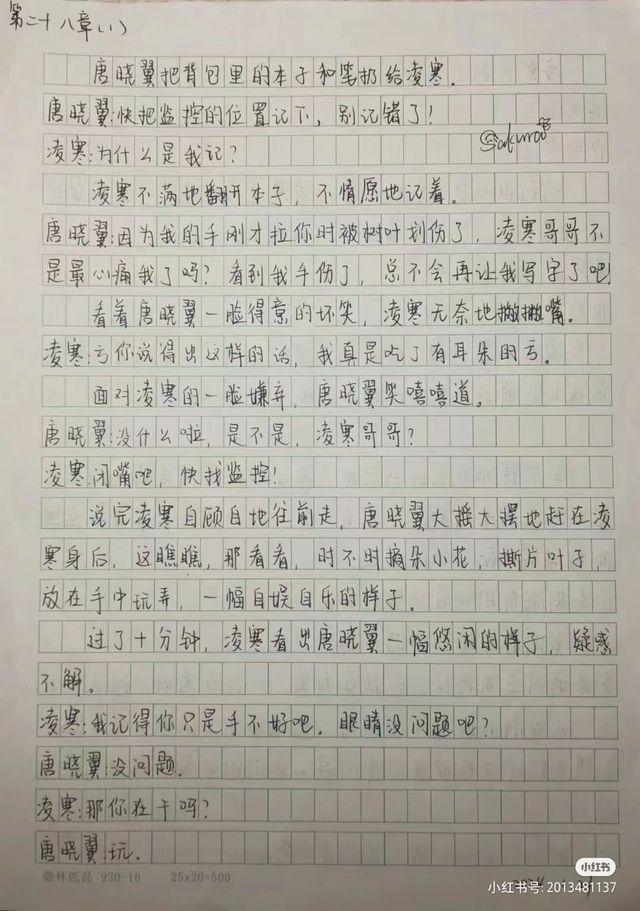 第二十八章(1)
唐晓翼把背包里的本子和笔扔给凌寒.
唐晓翼:快把监控的位置记下,别记错了!
凌寒:为什么是我记?
@Sakura
凌寒不满地翻开本子,不情愿地记着。
唐晓翼:因为我的手刚才拉你时被树叶划伤了,凌寒哥哥不
是最心痛我了吗?看到我手伤了,总不会再让我写字了吧!
看着唐晓翼一脸得意的坏笑,凌寒无奈地撇撇嘴.
凌寒:亏你说得出这样的话,我真是吃了有耳朵的亏。
面对凌寒的一脸嫌弃,唐晓翼笑嘻嘻道。
唐晓翼:没什么啦,是不是,凌寒哥哥?
凌寒:闭嘴吧,快找监控!
说完凌寒自顾自地往前走,唐晓翼大摇大摆地赶在凌
寒身后,这瞧瞧,那看看,时不时摘朵小花,撕片叶子,
放在手中玩弄,一幅自娱自乐的样子.
过了十分钟,凌寒看出唐晓翼一幅悠闲的样子,疑惑
不解。
凌寒:我记得你只是手不好吧.眼睛没问题吧?
唐晓翼:没问题.
凌寒:那你在干吗?
唐晓翼:玩.
强林纸品 930-16 25x20=500
小红书
小红书号: 2013481137